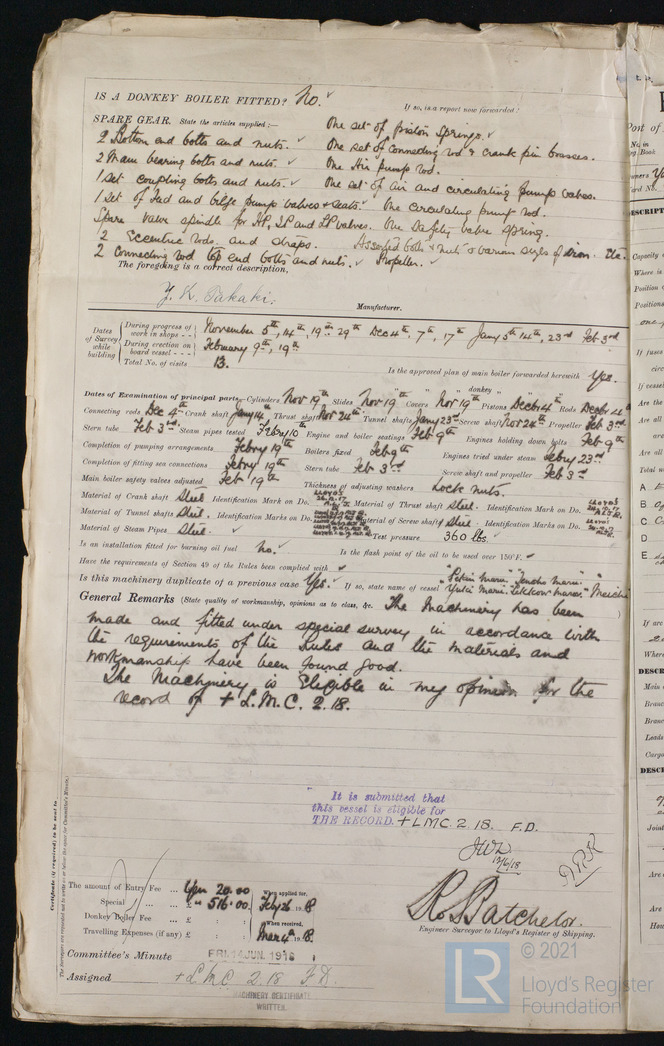 IS A DONKEY BOILER FITTED? No. ✓
If so, is a report now forwarded?
SPARE GEAR. State the articles supplied:— One set of piston springs. ✓
2 Bottom end bolts and nuts. ✓ One set of connecting rod & crank pin brasses.
2 Main bearing bolts and nuts. ✓ One Air pump rod.
1 set coupling bolts and nuts. ✓ One set of air and circulating pump valves.
1 set of Feed and bilge pump valves & seats. ✓ One circulating pump rod.
Spare valve spindle for HP, IP and LP valves. One safety valve spring.
2 Eccentric rods and straps. Assorted bolts & nuts & various sizes of iron. Etc.
2 Connecting rod top end bolts and nuts. ✓ Propeller. ✓
The foregoing is a correct description,
Y. K. Takaki. Manufacturer.
Dates of Survey while building
During progress of work in shops - - November 5th, 14th, 19th 29th Dec 4th, 7th, 17th Jany 5th 14th, 23rd Feb 3rd
During erection on board vessel - - - February 9th, 19th
Total No. of visits 13.
Is the approved plan of main boiler forwarded herewith Yes.
" " donkey " " "
Dates of Examination of principal parts—Cylinders Nov 19th Slides Nov 19th Covers Nov 19th Pistons Dec 4th Rods Dec 4th
Connecting rods Dec 4th Crank shaft Jany 14th Thrust shaft Nov 24th Tunnel shafts Jany 23rd Screw shaft Nov 24th Propeller Feb 3rd
Stern tube Feb 3rd Steam pipes tested Febry 10th Engine and boiler seatings Feb 9th Engines holding down bolts Feb 9th
Completion of pumping arrangements Febry 19th Boilers fixed Feb 9th Engines tried under steam Febry 23rd
Completion of fitting sea connections Febry 19th Stern tube Feb 3rd Screw shaft and propeller Feb 3rd
Main boiler safety valves adjusted Feb 19th Thickness of adjusting washers Lock nuts.
Material of Crank shaft Steel Identification Mark on Do. LLOYD'S Material of Thrust shaft Steel. Identification Mark on Do. LLOYD'S
Material of Tunnel shafts Steel. Identification Marks on Do. Material of Screw shafts Steel. Identification Marks on Do. LLOYD'S
Material of Steam Pipes Steel. ✓ Test pressure 360 lbs. ✓
Is an installation fitted for burning oil fuel No. ✓ Is the flash point of the oil to be used over 150°F. ✓
Have the requirements of Section 49 of the Rules been complied with ✓
Is this machinery duplicate of a previous case Yes. If so, state name of vessel "Pekin Maru"
General Remarks (State quality of workmanship, opinions as to class, &c. The Machinery has been
made and fitted under special survey in accordance with
the requirements of the Rules and the materials and
workmanship have been found good.
The Machinery is Eligible in my opinion for the
record of + L.M.C. 2.18.
It is submitted that
this vessel is eligible for
THE RECORD. + LMC. 2. 18. F.D.
12/6/18
The amount of Entry Fee ... Yen 20.00 When applied for,
Special ... £ " 516.00 Feby 26 1918
Donkey Boiler Fee ... £ When received,
Travelling Expenses (if any) £ Mar 4th 1918.
R. Batchelor.
Engineer Surveyor to Lloyd's Register of Shipping.
Committee's Minute FRI. 14 JUN. 1918
Assigned + L.M.C. 2.18 F.D.
MACHINERY CERTIFICATE
WRITTEN.
Certificate (if required) to be sent to
The Surveyors are requested not to write on or below the space for Committee's Minute.
© 2021
LR Lloyd's Register
Foundation